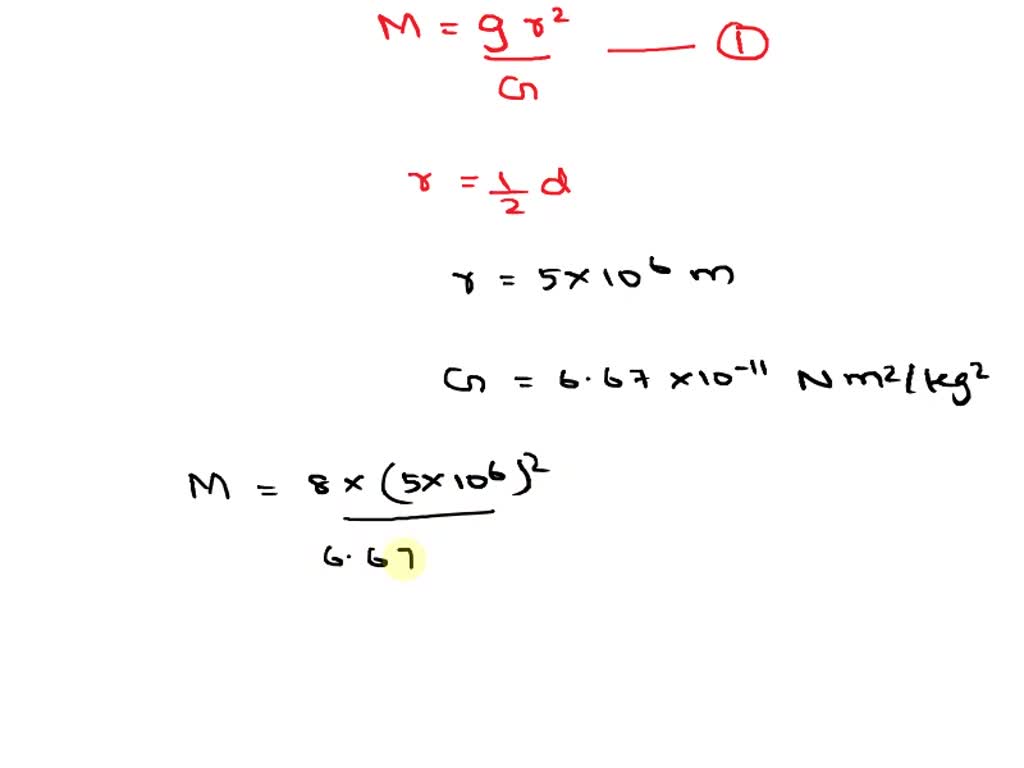 M = g r² / G —— ①
r = 1/2 d
r = 5×10⁶ m
G = 6.67 ×10⁻¹¹ N m²/kg²
M = 8 × (5×10⁶)²
6.67